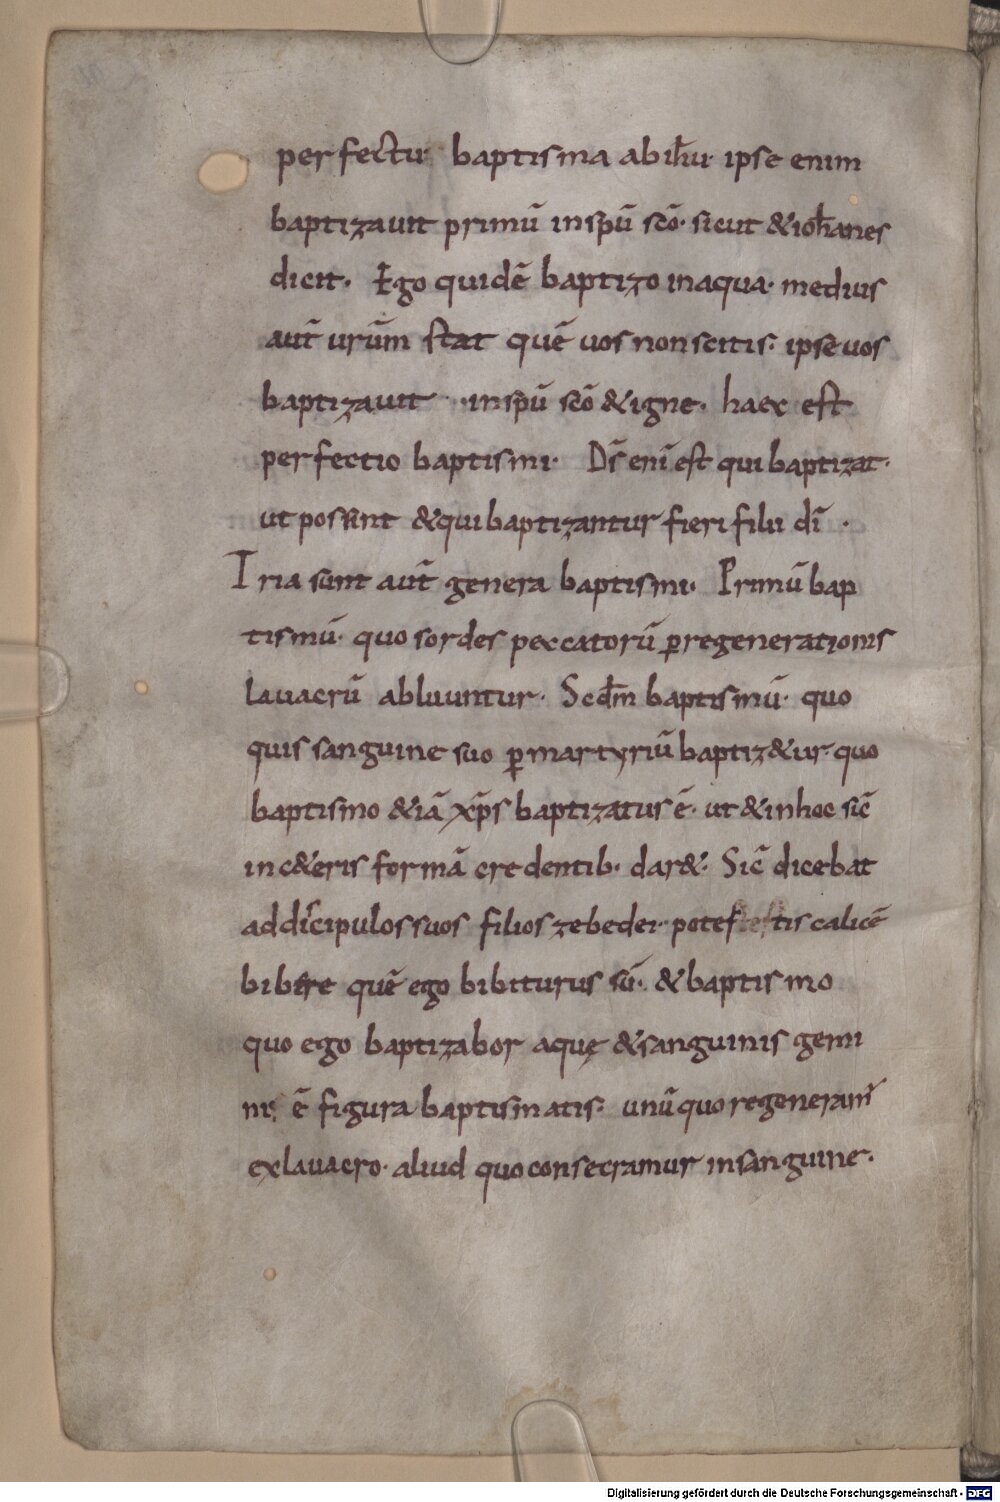 perfectu· baptisma abih̄u· ipse enim
baptizauit primū inspū scō· sicut & ioh̄anes
dicit· Ego quidē baptizo inaqua· medius
aut̄ urūm stat quē uos nonscitis· ipse uos
baptizauit inspū scō & igne· haec est
perfectio baptismi· Ds̄ eni̅ est qui baptizat·
ut possint & qui baptizantur fieri filii dī·
Tria sunt aut̄ genera baptismi· Primū bap
tismū· quo sordes peccatorū ꝑregenerationis
lauacrū abluuntur· Scd̄m baptismū· quo
quis sanguine suo ꝑmartyriū baptiz&ur· quo
baptismo &iā xp̄s baptizatus ē· ut & inhoc sic̄
inc&eris formā credentib· dar&· Sic̄ dicebat
addiscipulos suos filios zebedei· potestis calicē
bibere quē ego bibiturus sū· & baptismo
quo ego baptizabor aquę & sanguinis gemi
ni; ē figura baptismatis· unū quo regeneram̄
exlauacro· aliud quo consecramur insanguine·
Digitalisierung gefördert durch die Deutsche Forschungsgemeinschaft - DFG